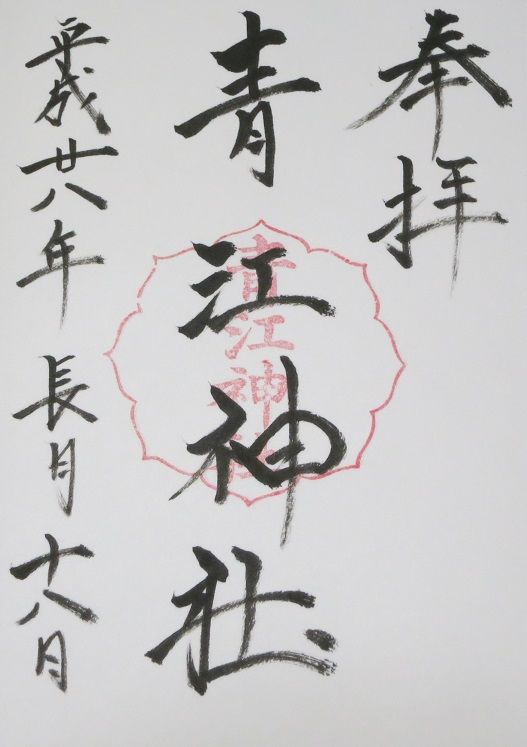 奉拝
青江神社
青江神社
平成廿八年長月十八日